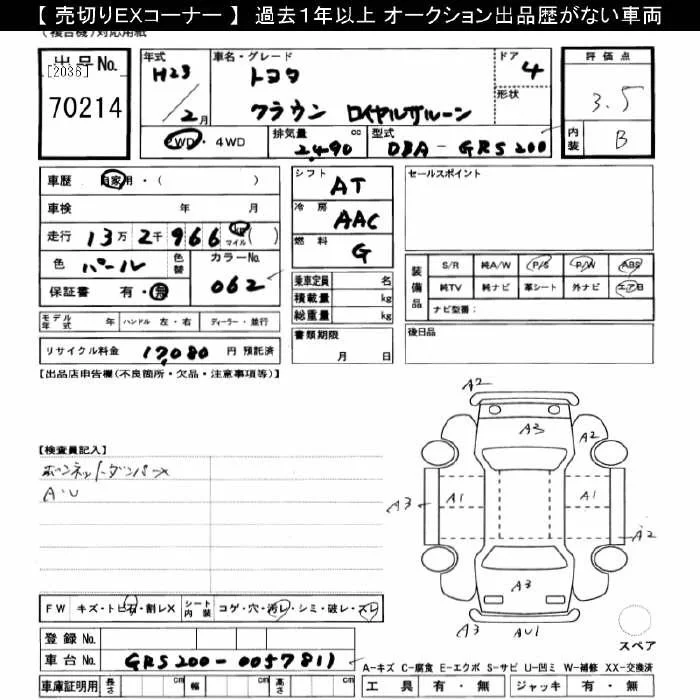 【 売切りEXコーナー 】 過去1年以上 オークション出品歴がない車両
(複合機)対応用紙
出品No.
[2036]
70214
年式 車名・グレード ドア 評価点
H23 トヨタ 4
/ 2月 クラウン ロイヤルサルーン 形状 3.5
2WD・4WD 排気量 cc 2,490 型式 DBA-GRS200 内装 B
車歴 自家用・( )
車検 年 月
走行 13万 2千 966 km マイル ( )
色 パール 色替 カラーNo. 062
保証書 有・無
シフト AT
冷房 AAC
燃料 G
乗車定員 名
積載量 kg
総重量 kg
セールスポイント
装備品 S/R 純A/W P/S P/W ABS
純TV 純ナビ 革シート 外ナビ エアB
ナビ型番:
モデル年式 年 ハンドル 左・右 ディーラー・並行
書類期限 月 日
後日品
リサイクル料金 17,080 円 預託済
【出品店申告欄(不良箇所・欠品・注意事項等)】
【検査員記入】
ボンネットダンパー×
A・U
A2
A3
A2
A3
A1
A1
A2
A3
A3
AU1
スペア
FW キズ・トビ石・割レX シート内装 コゲ・穴・汚レ・シミ・破レ・スレ
登録No.
車台No. GRS200-0057811
A-キズ C-腐食 E-エクボ S-サビ U-凹ミ W-補修 XX-交換済
車庫証明用 長さ cm 幅 cm 高さ cm 工具 有・無 ジャッキ 有・無